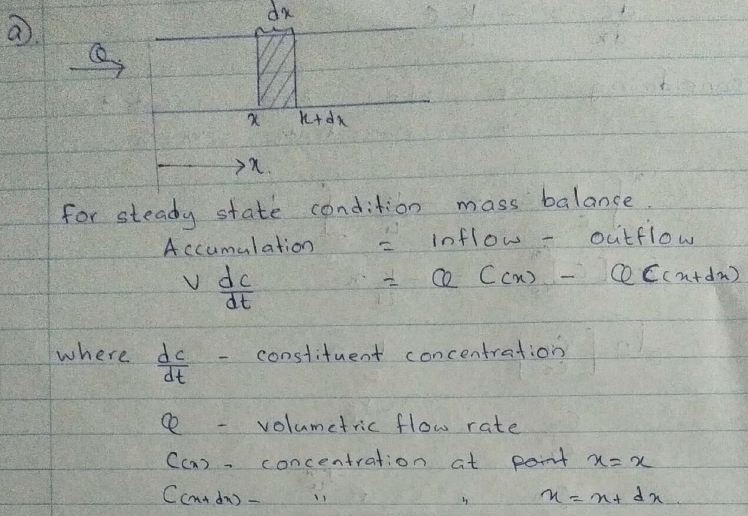 a)
dx
Q
x x+dx
x.
For steady state condition mass balance.
Accumulation = inflow - outflow
V dc/dt = Q C(x) - Q C(x+dx)
where dc/dt - constituent concentration
Q - volumetric flow rate
C(x) - concentration at point x=x
C(x+dx) - " " x=x+dx.